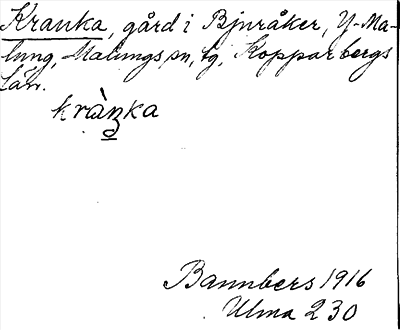 Kranka, gård i Bjuråker, Y-Ma-
lung, Malungs sn, tg, Kopparbergs
län.
kràn̲ka
Bannbers 1916
Ulma 230